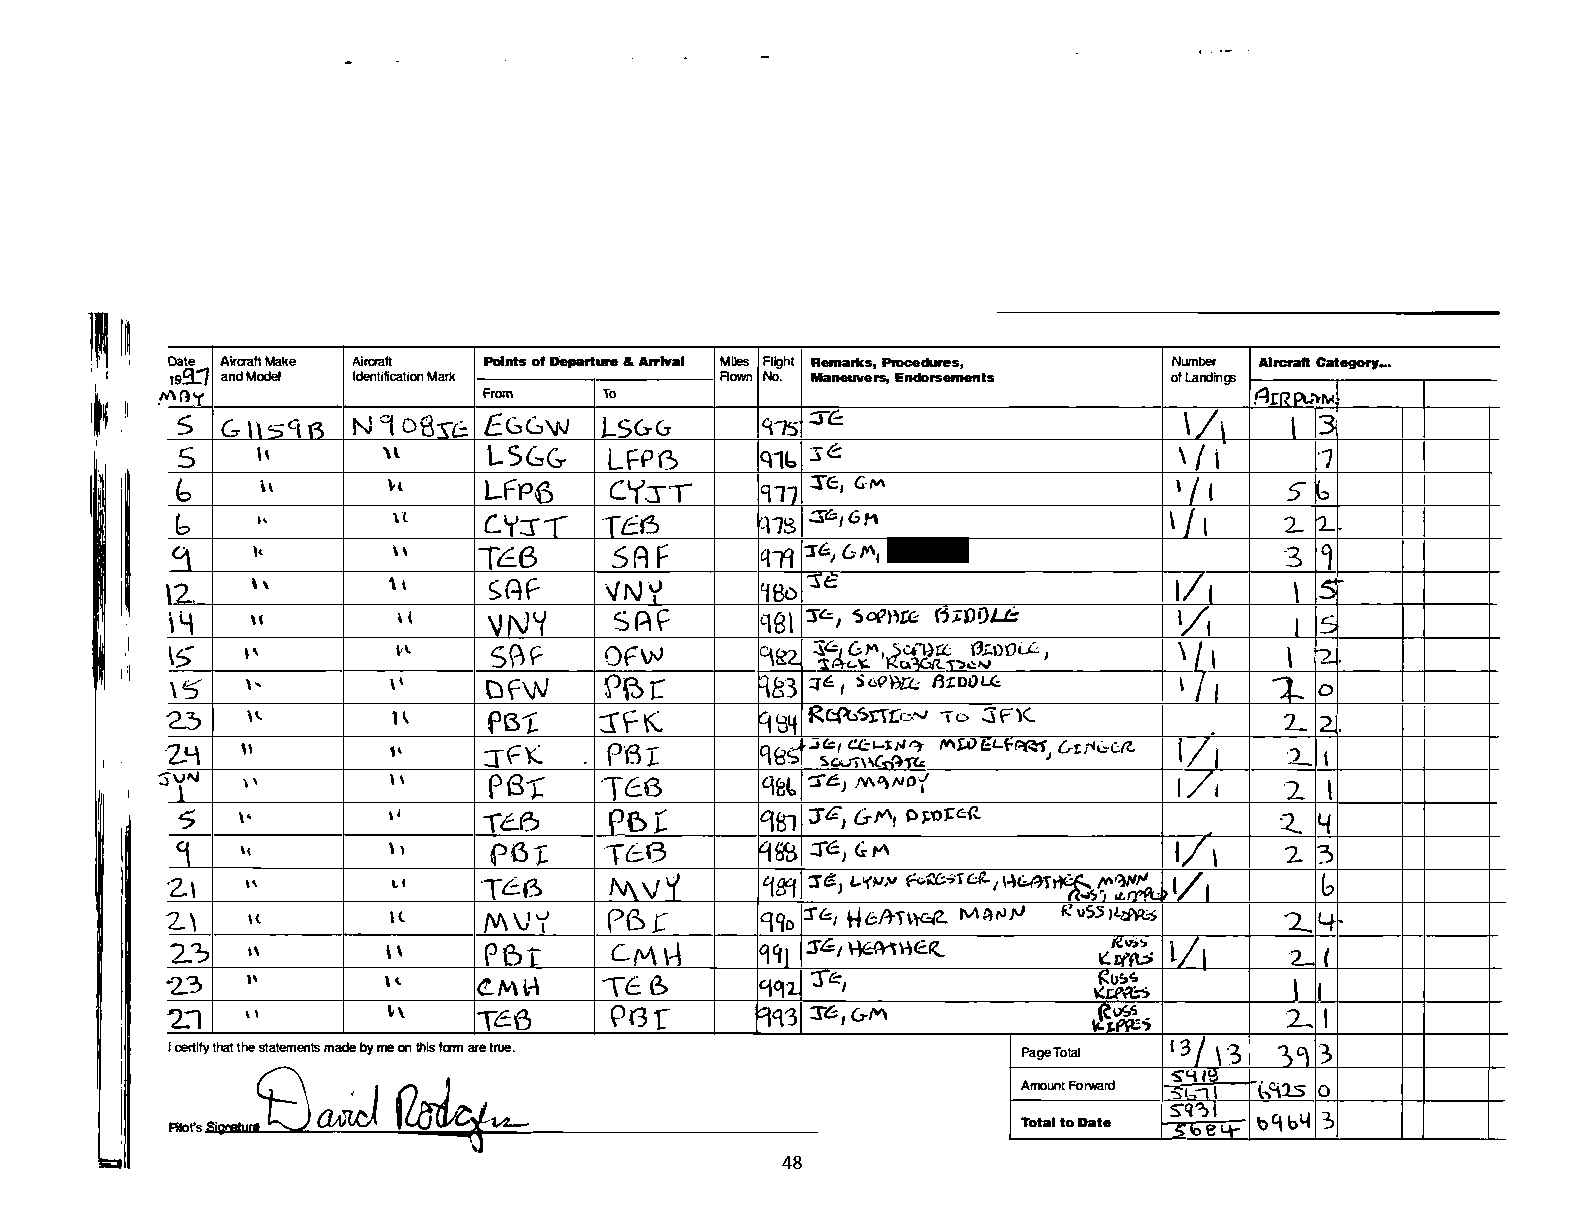 Date Aircraft Make Aircraft Points of Departure & Arrival Miles Flight Remarks, Procedures, Number Aircraft Category...
1997 and Model Identification Mark Flown No. Maneuvers, Endorsements of Landings
MAY From To AIRPLANE
5 G1159B N908JE EGGW LSGG 975 JE 1/1 1 3
5 " " LSGG LFPB 976 JE 1/1 7
6 " " LFPB CYJT 977 JE, GM 1/1 5 6
6 " " CYJT TEB 978 JE, GM 1/1 2 2
9 " " TEB SAF 979 JE, GM, 3 9
12 " " SAF VNY 980 JE 1/1 1 5
14 " " VNY SAF 981 JE, SOPHIE BIDDLE 1/1 1 5
15 " " SAF DFW 982 JE, GM, SOPHIE BIDDLE, 1/1 1 2
JACK ROBERTSON
15 " " DFW PBI 983 JE, SOPHIE BIDDLE 1/1 2 0
23 " " PBI JFK 984 REPOSITION TO JFK 2 2
24 " " JFK PBI 985 JE, CELINA MIDELFART, GINGER 1/1 2 1
SOUTHGATE
JUN
1 " " PBI TEB 986 JE, MANDY 1/1 2 1
5 " " TEB PBI 987 JE, GM, DIDIER 2 4
9 " " PBI TEB 988 JE, GM 1/1 2 3
21 " " TEB MVY 989 JE, LYNN FORESTER, HEATHER MANN 1/1 6
RUSS KIPPES
21 " " MVY PBI 990 JE, HEATHER MANN RUSS KIPPES 2 4
23 " " PBI CMH 991 JE, HEATHER RUSS 1/1 2 1
KIPPES
23 " " CMH TEB 992 JE, RUSS 1 1
KIPPES
27 " " TEB PBI 993 JE, GM RUSS 2 1
KIPPES
I certify that the statements made by me on this form are true. Page Total 13/13 39 3
Amount Forward 5918 5671 6925 0
Pilot's Signature David Rodgers Total to Date 5931 5684 6964 3
48